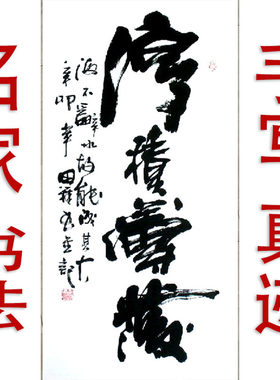 手写真迹
厚積薄發
海不辭水故能成其大
辛卯年田
名家书法